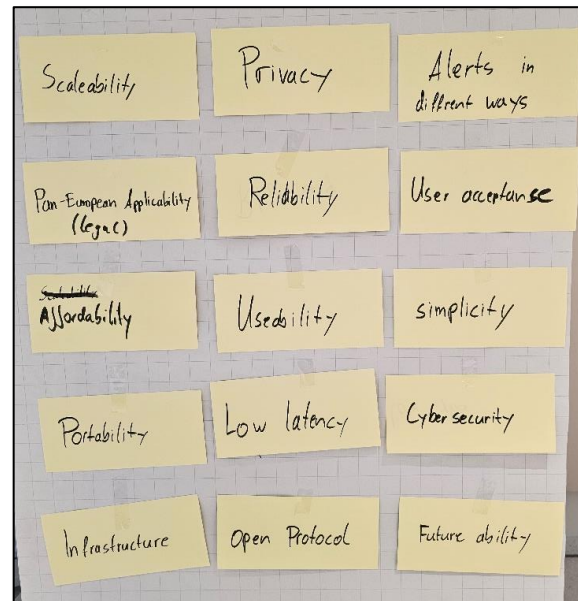 Scaleability
Privacy
Alerts in
diffrent ways
Pan-European Applicability
(legal)
Reliability
User acceptanse
Affordability
Useability
simplicity
Portability
Low latency
Cybersecurity
Infrastructure
Open Protocol
Future ability